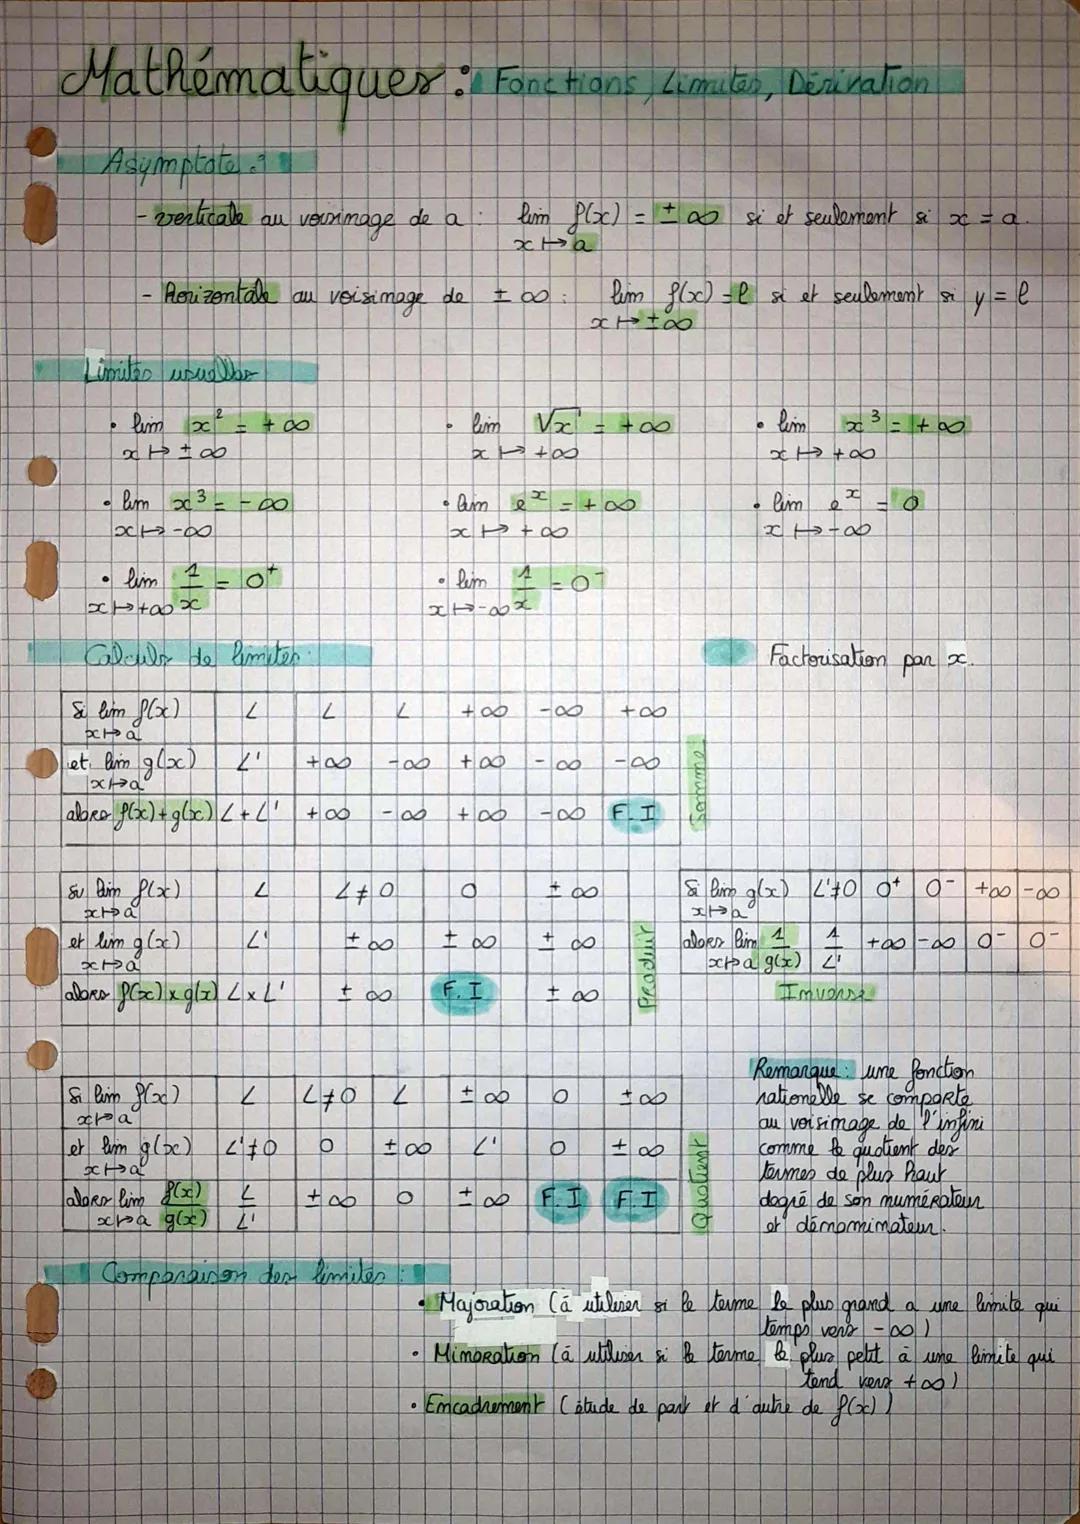 Mathématiques : Fonctions, Limites, Dérivation
Asymptote :
- verticale au voisinage de a : lim f(x) = ± ∞ si et seulement si x = a.
x ↦ a
- Horizontale au voisinage de ± ∞ : lim f(x) = l si et seulement si y = l
x ↦ ± ∞
Limites usuelles
• lim x² = + ∞ • lim √x = + ∞ • lim x³ = + ∞
x ↦ ± ∞ x ↦ + ∞ x ↦ + ∞
• lim x³ = - ∞ • lim eˣ = + ∞ • lim eˣ = 0
x ↦ - ∞ x ↦ + ∞ x ↦ - ∞
• lim 1/x = 0⁺ • lim 1/x = 0⁻
x ↦ + ∞ x ↦ - ∞
Calculs de limites : Factorisation par x.
Si lim f(x) L L L + ∞ - ∞ + ∞
x ↦ a
et lim g(x) L' + ∞ - ∞ + ∞ - ∞ - ∞
x ↦ a
alors f(x) + g(x) L + L' + ∞ - ∞ + ∞ - ∞ F.I
Somme :
Si lim f(x) L L ≠ 0 0 ± ∞
x ↦ a
et lim g(x) L' ± ∞ ± ∞ ± ∞
x ↦ a
alors f(x) x g(x) L x L' ± ∞ F.I ± ∞
Produit
Si lim g(x) L' ≠ 0 0⁺ 0⁻ + ∞ - ∞
x ↦ a
alors lim 1/g(x) 1/L' + ∞ - ∞ 0⁻ 0⁻
x ↦ a
Inverse
Si lim f(x) L L ≠ 0 L ± ∞ 0 ± ∞
x ↦ a
et lim g(x) L' ≠ 0 0 ± ∞ L' 0 ± ∞
x ↦ a
alors lim f(x)/g(x) L/L' ± ∞ 0 ± ∞ F.I F.I
x ↦ a
Quotient
Remarque : une fonction
rationelle se comporte
au voisinage de l'infini
comme le quotient des
termes de plus haut
degré de son numérateur
et dénominateur.
Comparaison des limites :
• Majoration (à utiliser si le terme le plus grand a une limite qui
temps vers - ∞)
• Minoration (à utiliser si le terme le plus petit à une limite qui
tend vers + ∞)
• Encadrement (étude de part et d'autre de f(x))